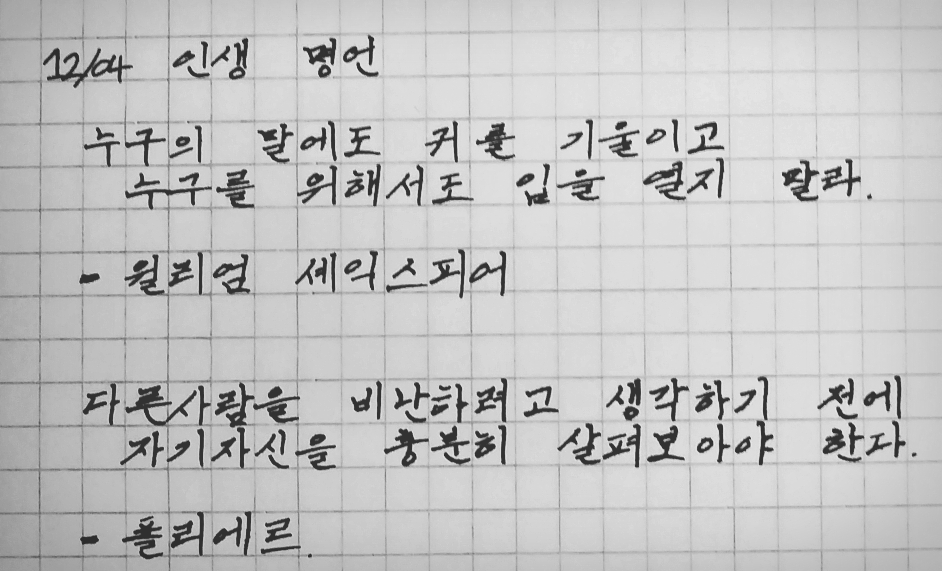 12/04 인생 명언
누구의 말에도 귀를 기울이고
누구를 위해서도 입을 열지 말라.
- 윌리엄 셰익스피어
다른사람을 비난하려고 생각하기 전에
자기자신을 충분히 살펴보아야 한다.
- 몰리에르.